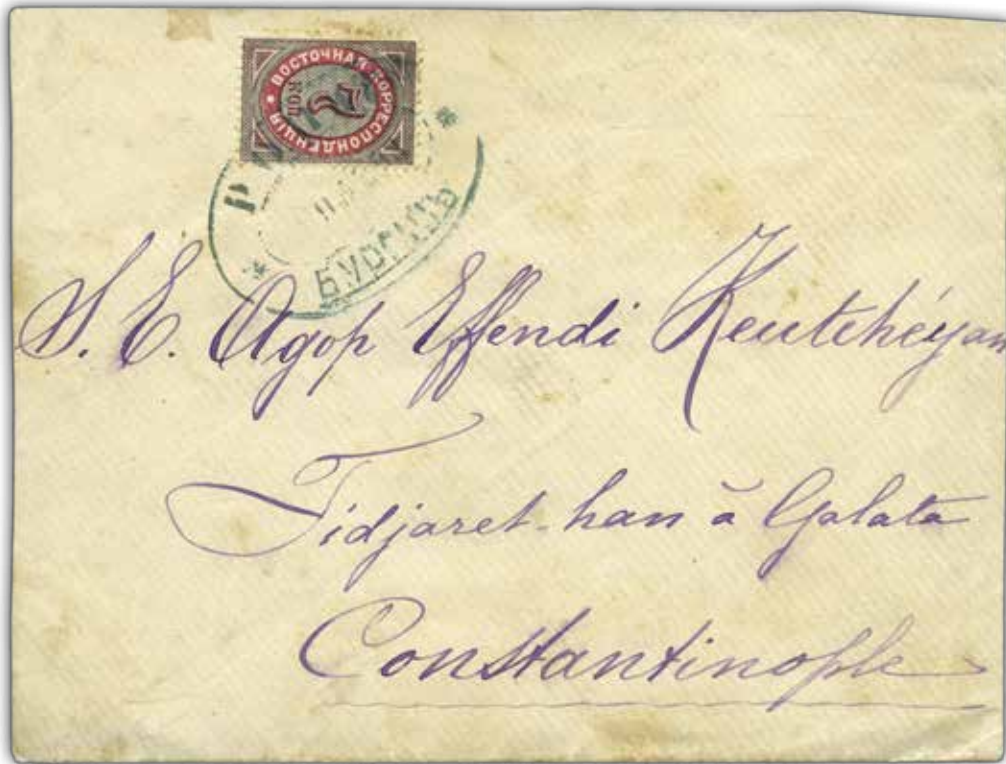 ВОСТОЧНАЯ КОРРЕСПОНДЕНЦІЯ
7
КОП
S. E. Agop Effendi Keutchéyan
Tidjaret-han à Galata
Constantinople